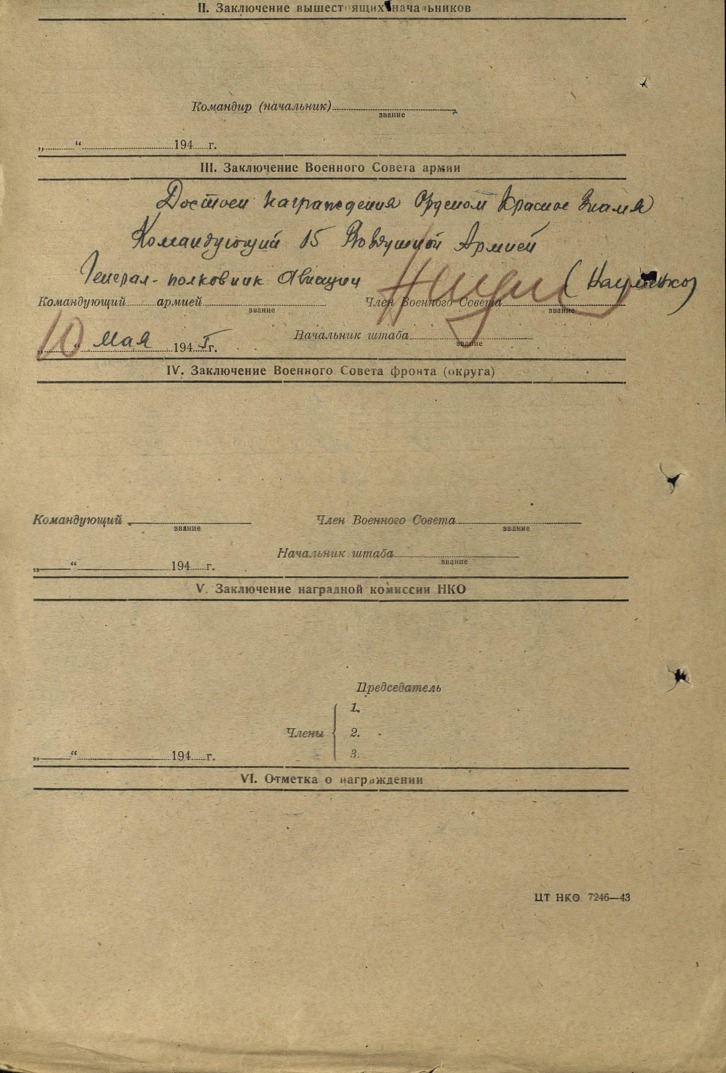 II. Заключение вышестоящих начальников
Командир (начальник)
звание
„ “ 194 г.
III. Заключение Военного Совета армии
Достоен награждения Орденом Красное Знамя
Командующий 15 Воздушной Армией
Генерал-полковник Авиации (Науменко)
Командующий армией Член Военного Совета
звание звание
10 Мая 1945 г. Начальник штаба
звание
IV. Заключение Военного Совета фронта (округа)
Командующий Член Военного Совета
звание звание
Начальник штаба
звание
„ “ 194 г.
V. Заключение наградной комиссии НКО
Председатель
1.
Члены 2.
3.
„ “ 194 г.
VI. Отметка о награждении
ЦТ НКО 7246—43